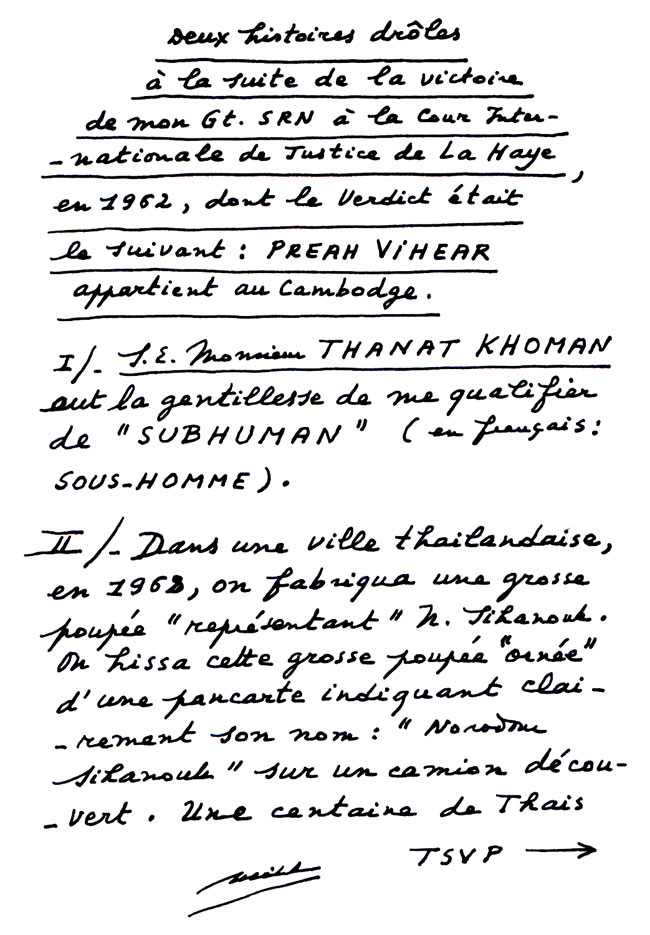 Deux histoires drôles
à la suite de la victoire
de mon Gt. SRN à la Cour Inter-
-nationale de Justice de La Haye,
en 1962, dont le Verdict était
le suivant : PREAH ViHEAR
appartient au Cambodge.
I/- S.E. Monsieur THANAT KHOMAN
eut la gentillesse de me qualifier
de "SUBHUMAN" (en français:
SOUS-HOMME).
II/- Dans une ville thaïlandaise,
en 1962, on fabriqua une grosse
poupée "représentant" N. Sihanouk.
On hissa cette grosse poupée "ornée"
d'une pancarte indiquant clai-
-rement son nom : "Norodom
Sihanouk" sur un camion décou-
-vert. Une centaine de Thais
TSVP →